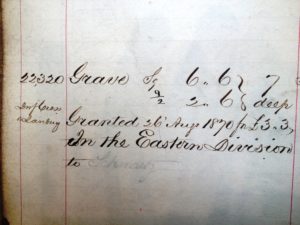 22320 Grave 6 . 6 } 7
2 . 6 } deep
& Landing
Granted 26 Aug 1870 £3 . 3 ,
In the Eastern Division
to